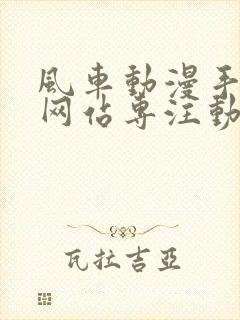 風車動漫手
网佔专注動
瓦拉吉亞